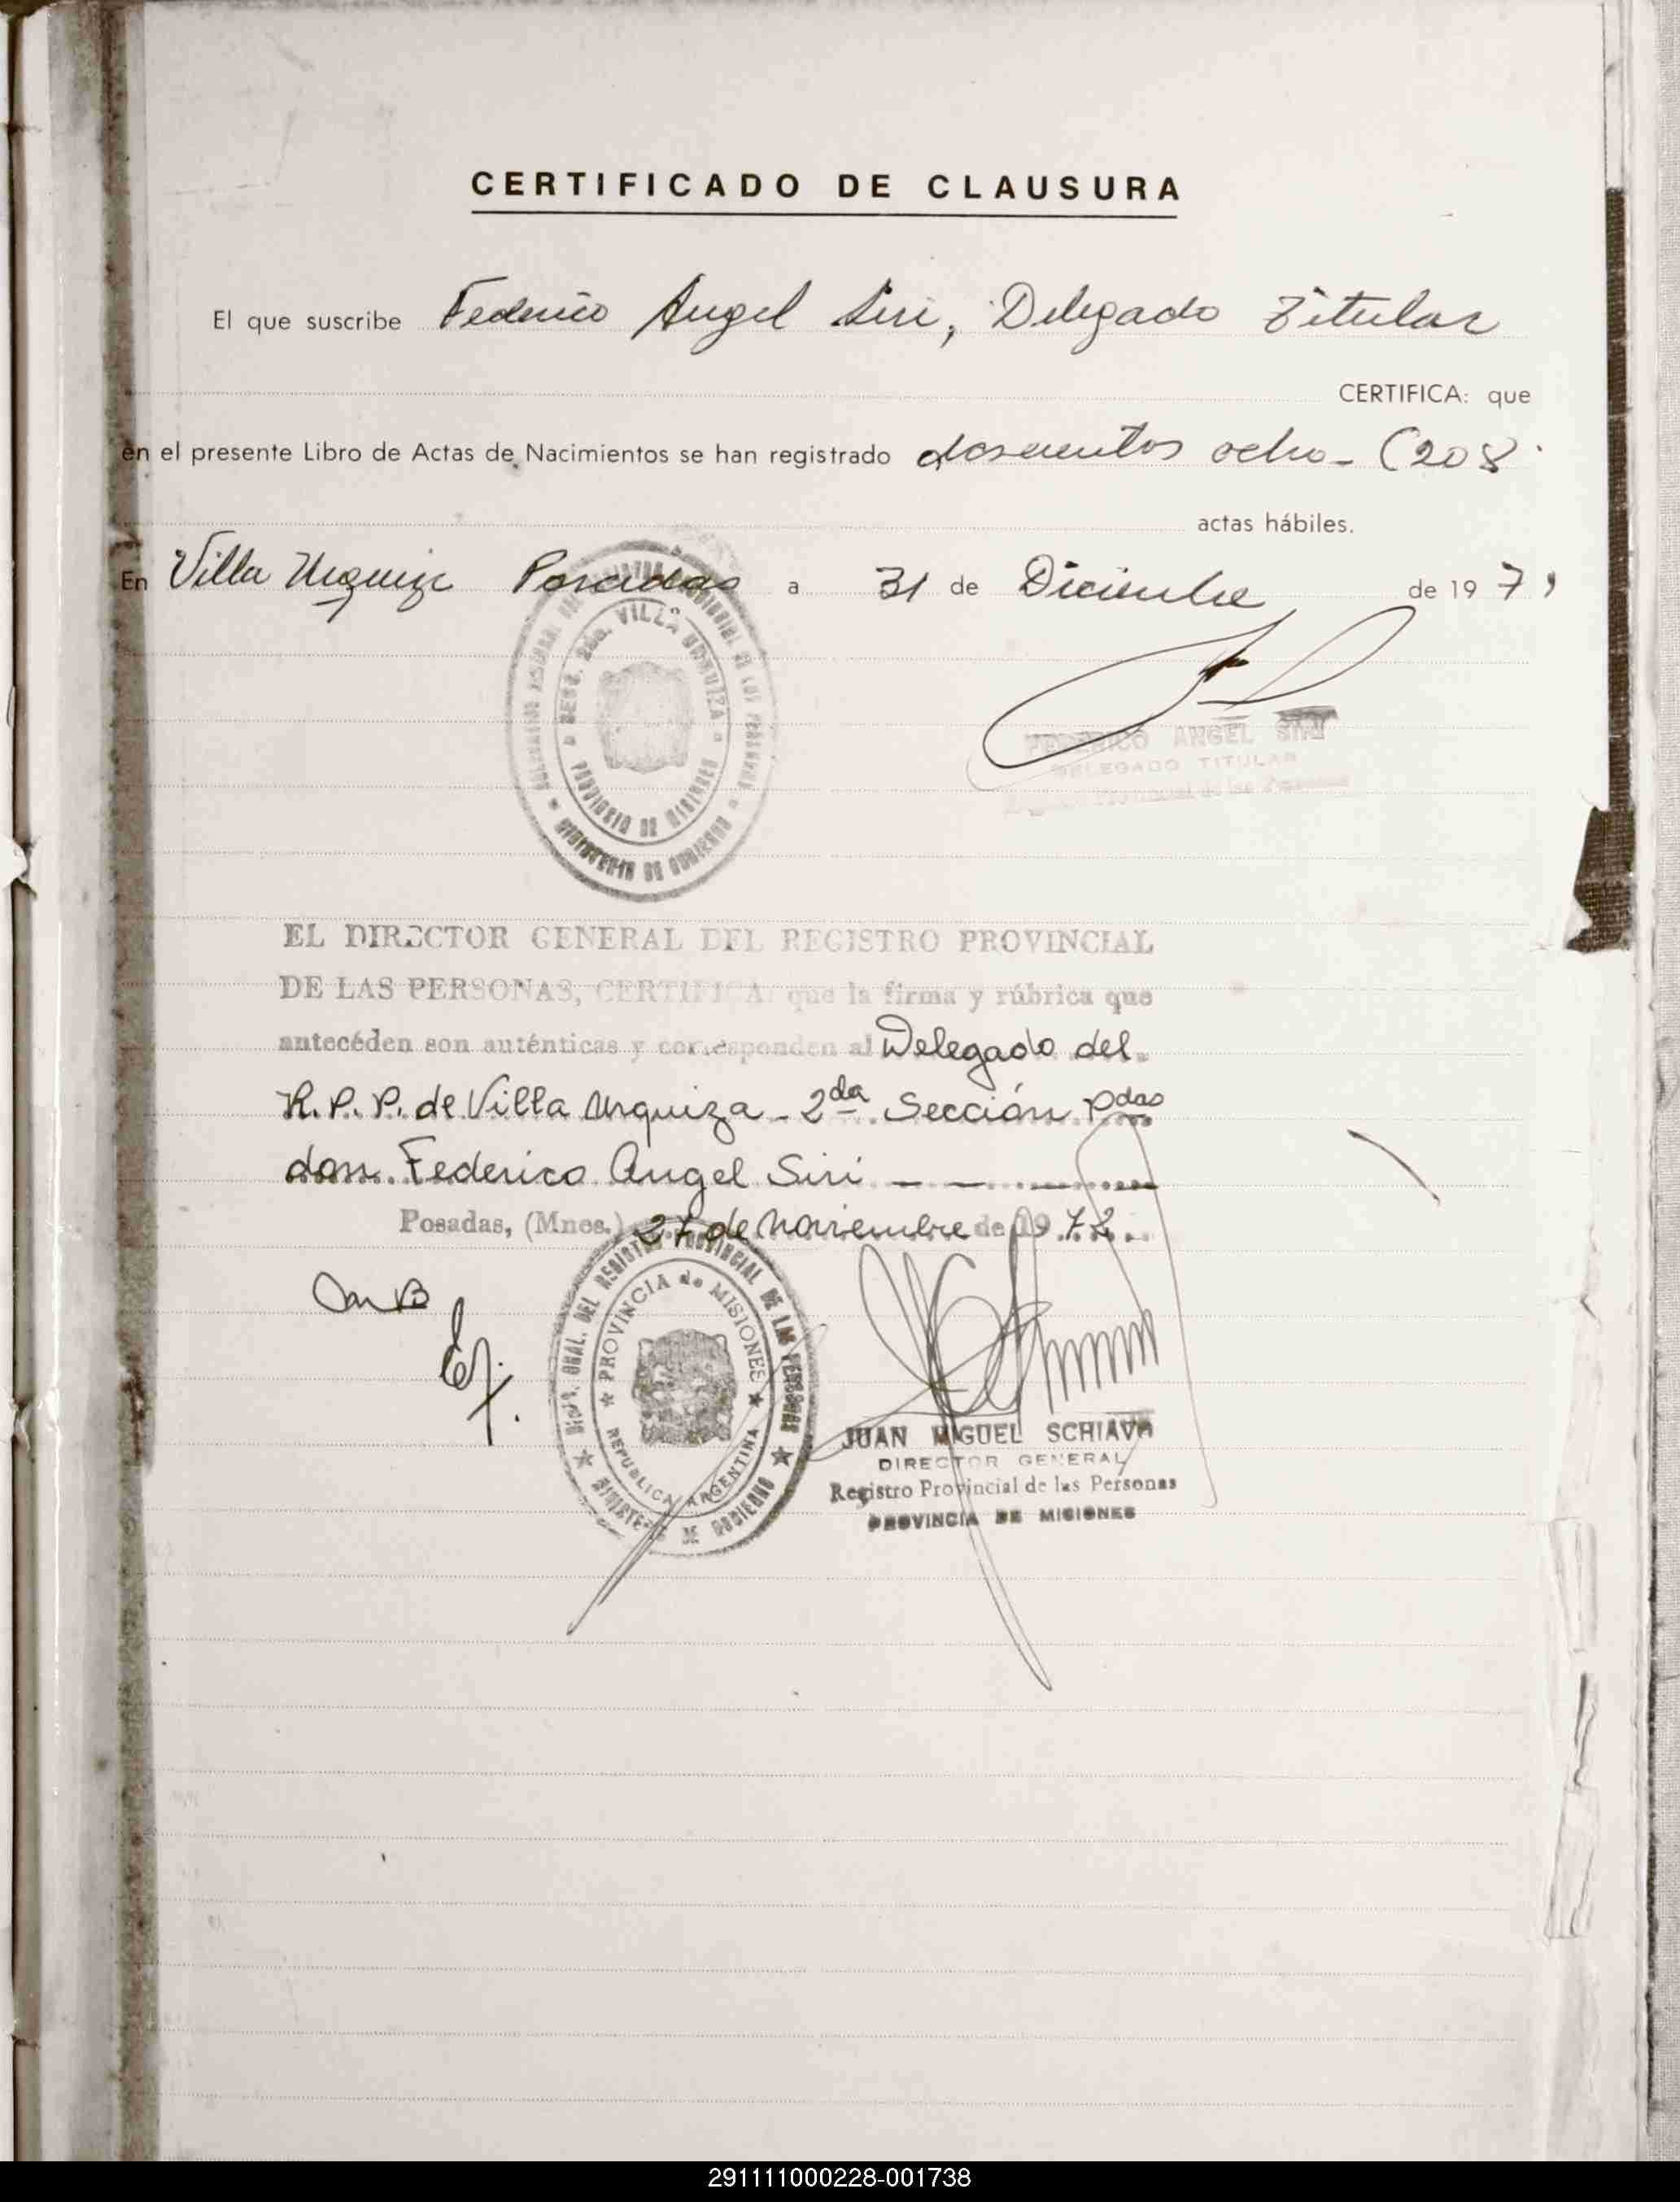 CERTIFICADO DE CLAUSURA
El que suscribe Federico Angel Siri, Delegado Titular
CERTIFICA: que
en el presente Libro de Actas de Nacimientos se han registrado doscientos ocho - (208
actas hábiles.
En Villa Urquiza Posadas a 31 de Diciembre de 197
SECC. 2da. VILLA URQUIZA
PROVINCIA DE MISIONES
MINISTERIO DE GOBIERNO
FEDERICO ANGEL SIRI
DELEGADO TITULAR
Registro Provincial de las Personas
EL DIRECTOR GENERAL DEL REGISTRO PROVINCIAL
DE LAS PERSONAS, CERTIFICA: que la firma y rúbrica que
antecéden son auténticas y corresponden al Delegado del
R. P. P. de Villa Urquiza - 2da Sección Pdas
don. Federico Angel Siri
Posadas, (Mnes.) 27 de Noviembre de 1972.
DEL REGISTRO PROVINCIAL DE LAS PERSONAS
PROVINCIA de MISIONES
REPUBLICA ARGENTINA
JUAN MIGUEL SCHIAVO
DIRECTOR GENERAL
Registro Provincial de las Personas
PROVINCIA DE MISIONES
291111000228-001738